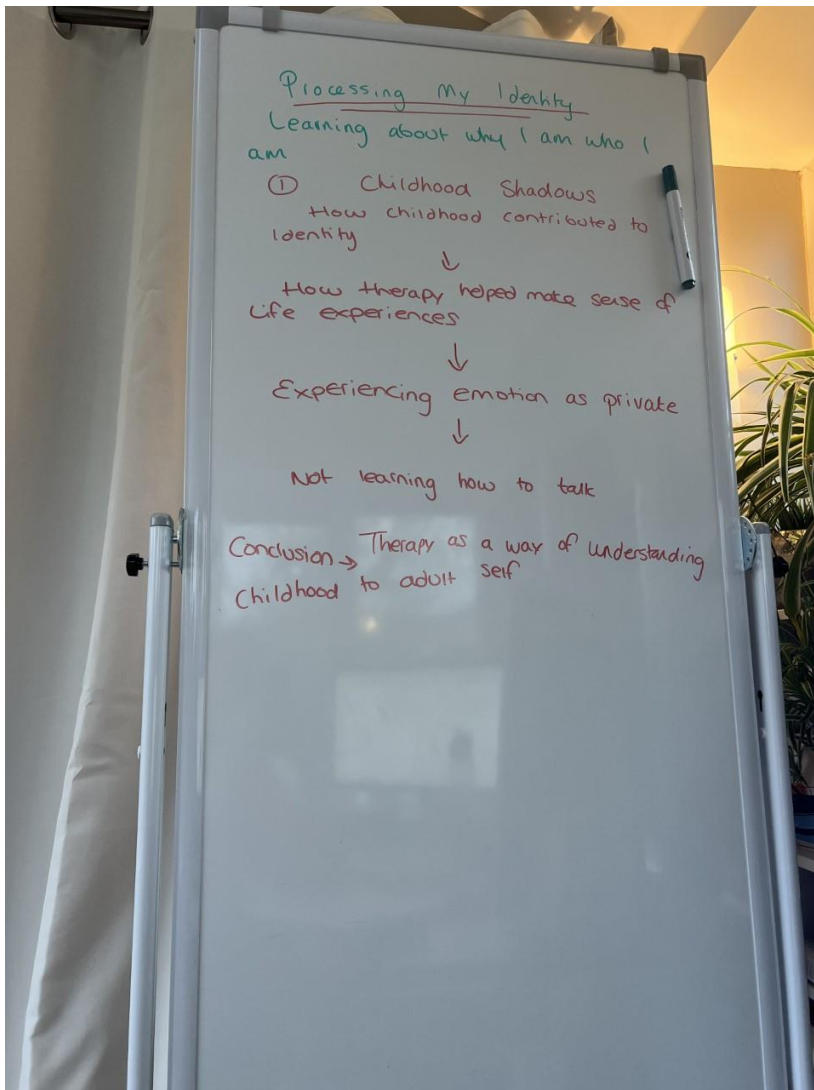 Processing My Identity
Learning about why I am who I
am
① Childhood Shadows
How childhood contributed to
Identity
↓
How therapy helped make sense of
Life experiences
↓
Experiencing emotion as private
↓
Not learning how to talk
Conclusion → Therapy as a way of understanding
Childhood to adult self